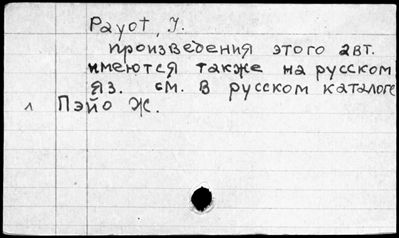 Payot, J.
произведения этого авт.
имеются также на русском
яз. см. в русском каталоге
^ Пэйо Ж.